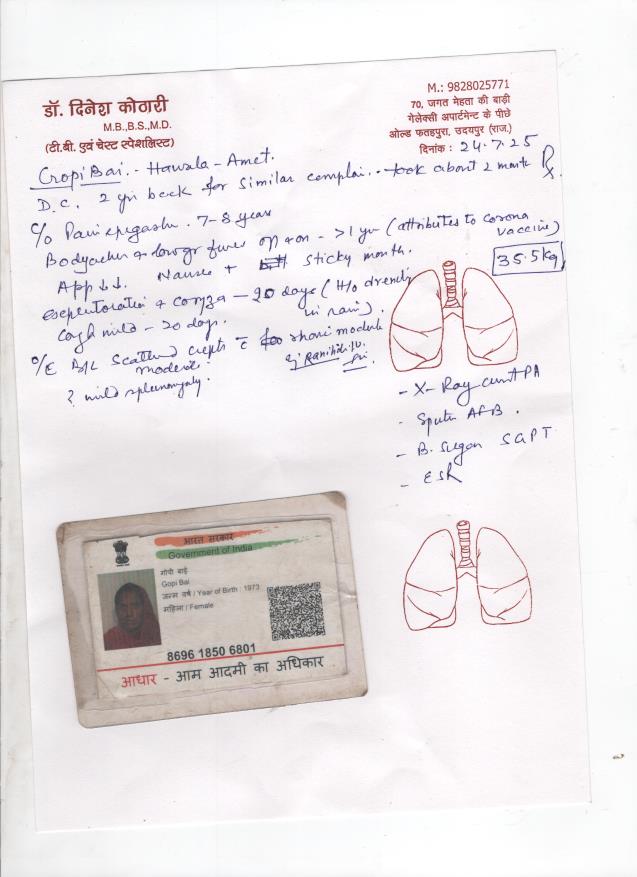 डॉ. दिनेश कोठारी
M.B.,B.S.,M.D.
(टी.बी. एवं चेस्ट स्पेशलिस्ट)
M.: 9828025771
70, जगत मेहता की बाड़ी
गेलेक्सी अपार्टमेन्ट के पीछे
ओल्ड फतहपुरा, उदयपुर (राज.)
दिनांक : 24.7.25
Gopi Bai. - Hawala - Amet.
D.C. 2 yr back for similar complai.. took about 2 month
℞
c/o 7-8 years
Bodyaches + low gr fever off + on - >1 yr (attributes to corona vaccine)
App ↓↓. Nausea + sticky mouth.
35.5kg
expectoration + coryza - 20 days (H/o drench in rain).
Cough mild - 20 days.
O/E B/L scattered crepts
moderate.
? mild splenomegaly.
- X-Ray chest PA
- Sputum AFB.
- B. Sugar SGPT
- ESR
भारत सरकार
Government of India
गोपी बाई
Gopi Bai
जन्म वर्ष / Year of Birth : 1973
महिला / Female
8696 1850 6801
आधार - आम आदमी का अधिकार